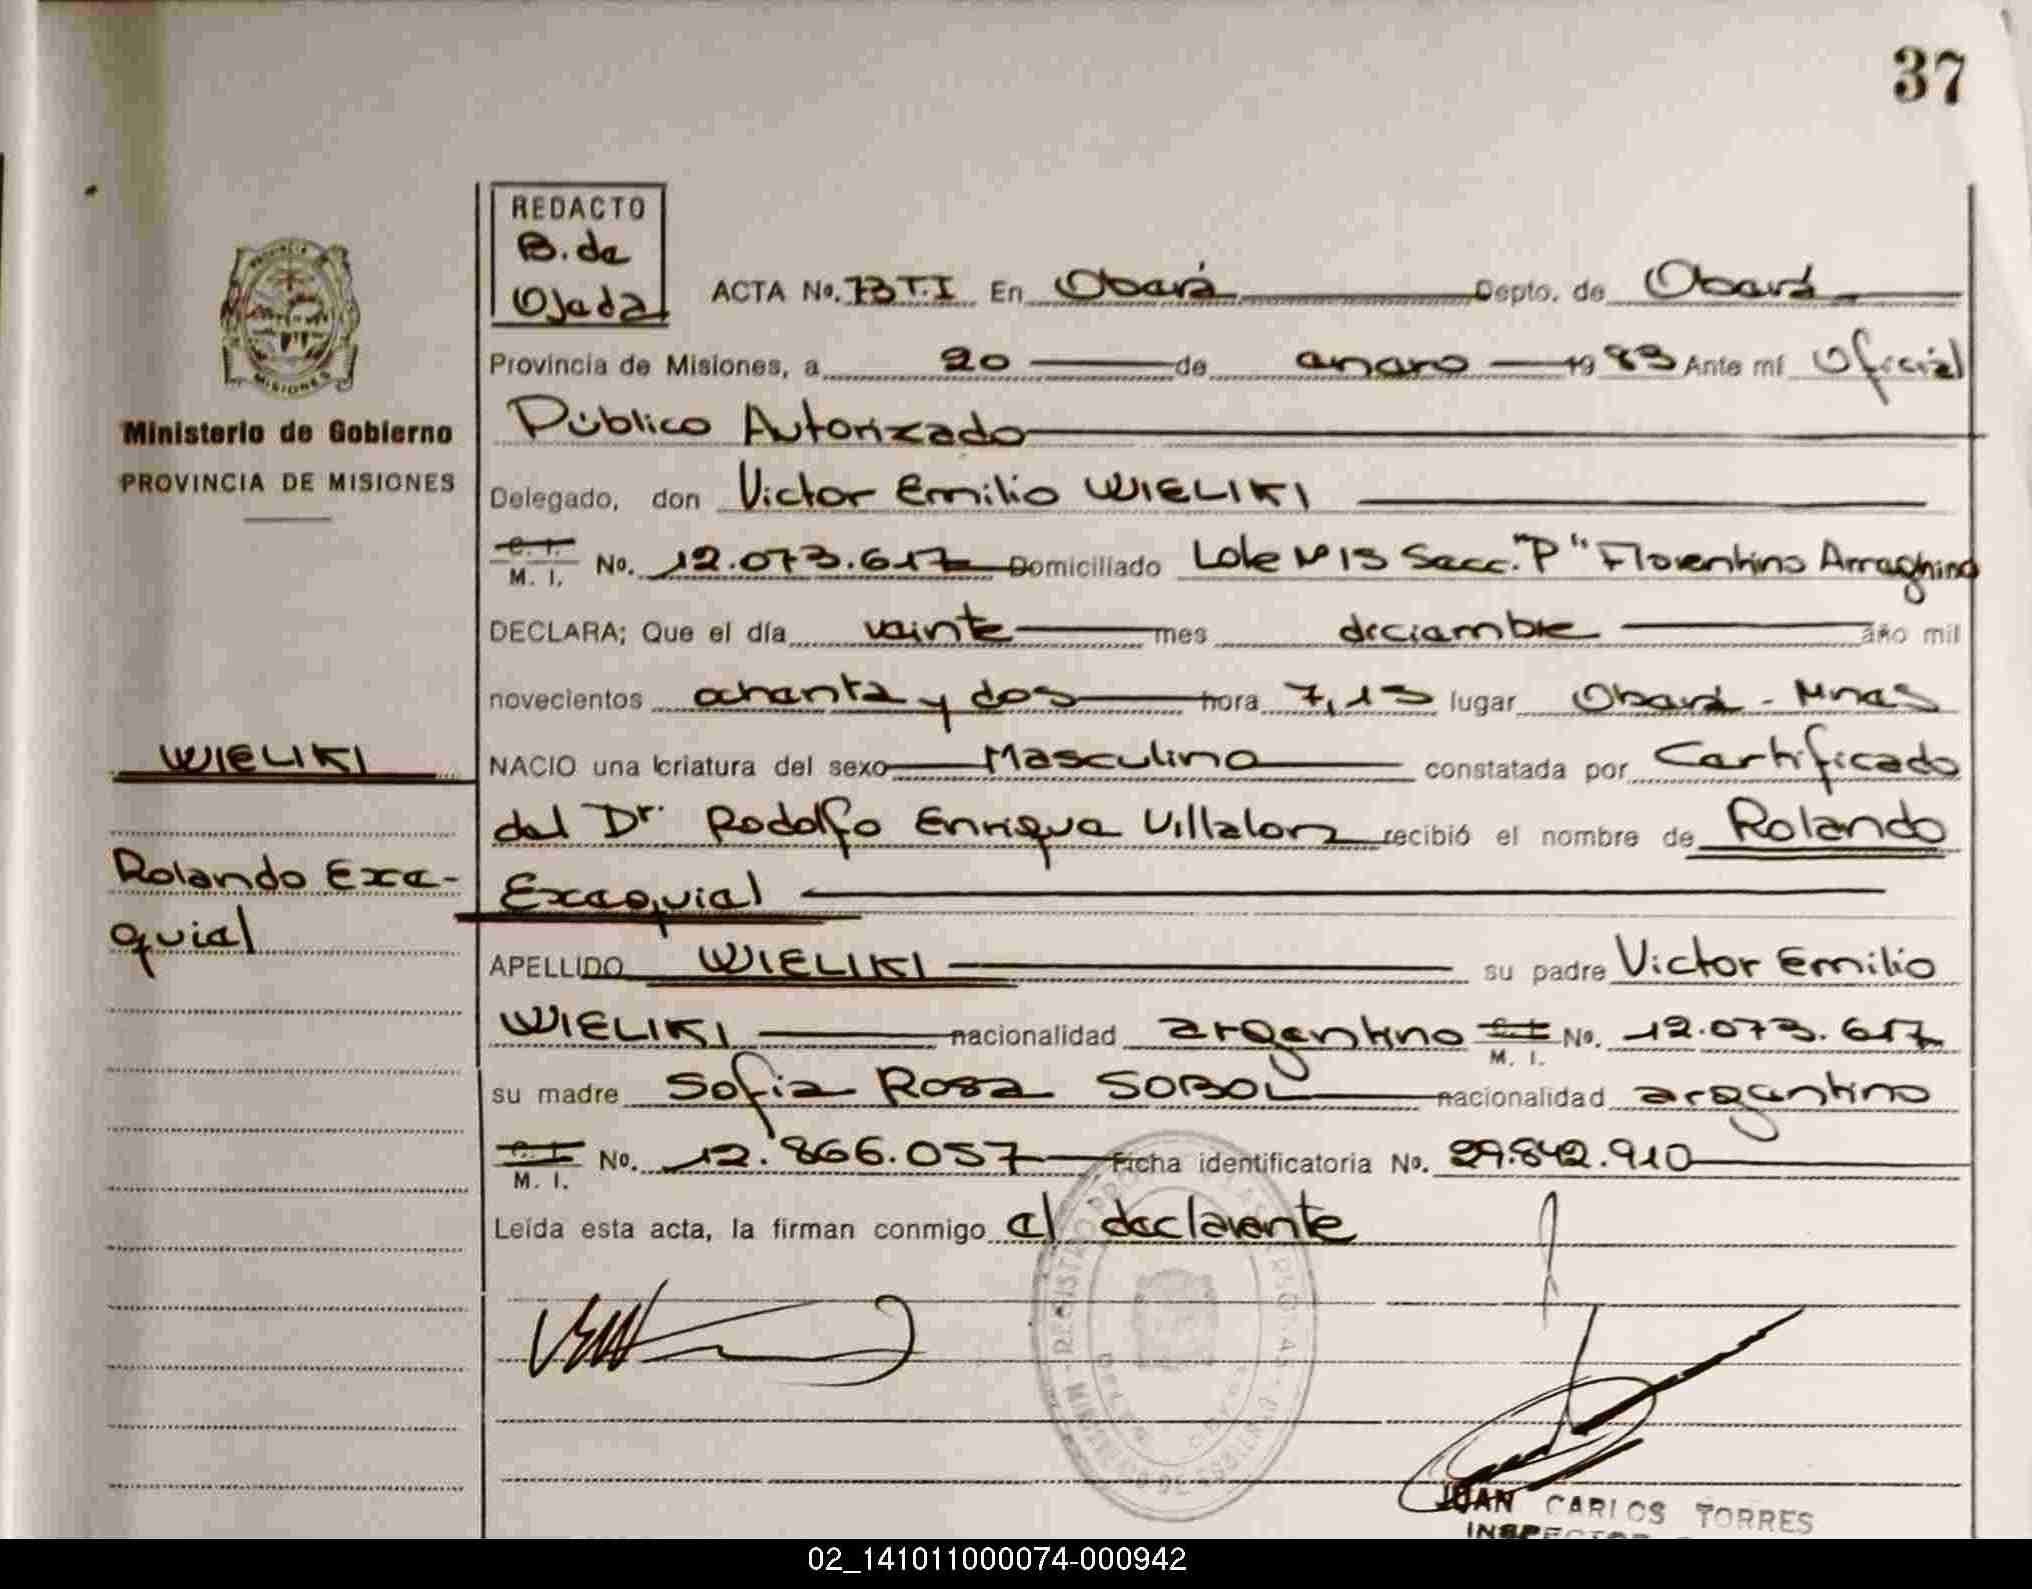 37
REDACTO
B. de
Ojeda
ACTA No. 73 T.I En Oberá Depto. de Oberá
Provincia de Misiones, a 20 de enero 1983 Ante mí Oficial
Público Autorizado
Ministerio de Gobierno
PROVINCIA DE MISIONES
Delegado, don Victor Emilio WIELIKI
C. I.
M. I. No. 12.073.617 Domiciliado Lote Nº 13 Secc. "P" Florentino Ameghino
DECLARA; Que el día veinte mes diciembre año mil
novecientos ochenta y dos hora 7,15 lugar Oberá - Mnes
WIELIKI
NACIO una criatura del sexo Masculino constatada por Certificado
del Dr. Rodolfo Enrique Villalon recibió el nombre de Rolando
Exequiel
Rolando Exe-
quiel
APELLIDO WIELIKI su padre Victor Emilio
WIELIKI nacionalidad argentino C. I. M. I. No. 12.073.617
su madre Sofia Rosa SOBOL nacionalidad argentino
C. I.
M. I. No. 12.866.057 Ficha identificatoria No. 29.842.910
Leída esta acta, la firman conmigo el declarente
JUAN CARLOS TORRES
INSPECTOR
02_141011000074-000942